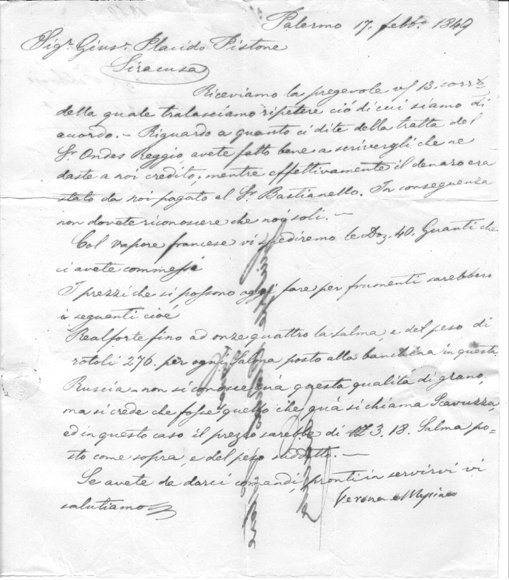 Palermo 17. febb.º 1849
Sig.r Gius.e Placido Pistone
Siracusa
Riceviamo la pregevole v/ 13. corr.e
della quale tralasciamo ripetere ciò di cui siamo di
accordo. - Riguardo a quanto ci dite della tratta del
Sr. Ondes Reggio avete fatto bene a scrivergli che ne
daste a noi credito, mentre effettivamente il denaro era
stato da noi pagato al Sr. Bastianello. In conseguenza
non dovete riconoscere che noi soli. -
Col vapore francese vi spediremo le Doz. 40. Guanti che
ci avete commesse
I prezzi che si possono oggi fare per frumenti sarebbero
i seguenti cioè
Realforte fino ad onze quattro la salma, e del peso di
rotoli 276. per ogni Salma posto alla banchina in questa
Ruscia - non si conosce quà questa qualità di grano,
ma si crede che fosse quello che quà si chiama Lavuzza,
ed in questo caso il prezzo sarebbe di 3. 18. Salma po-
sto come sopra, e del peso suddetto. -
Se avete da darci comandi, pronti in servirvi vi
salutiamo
Verona